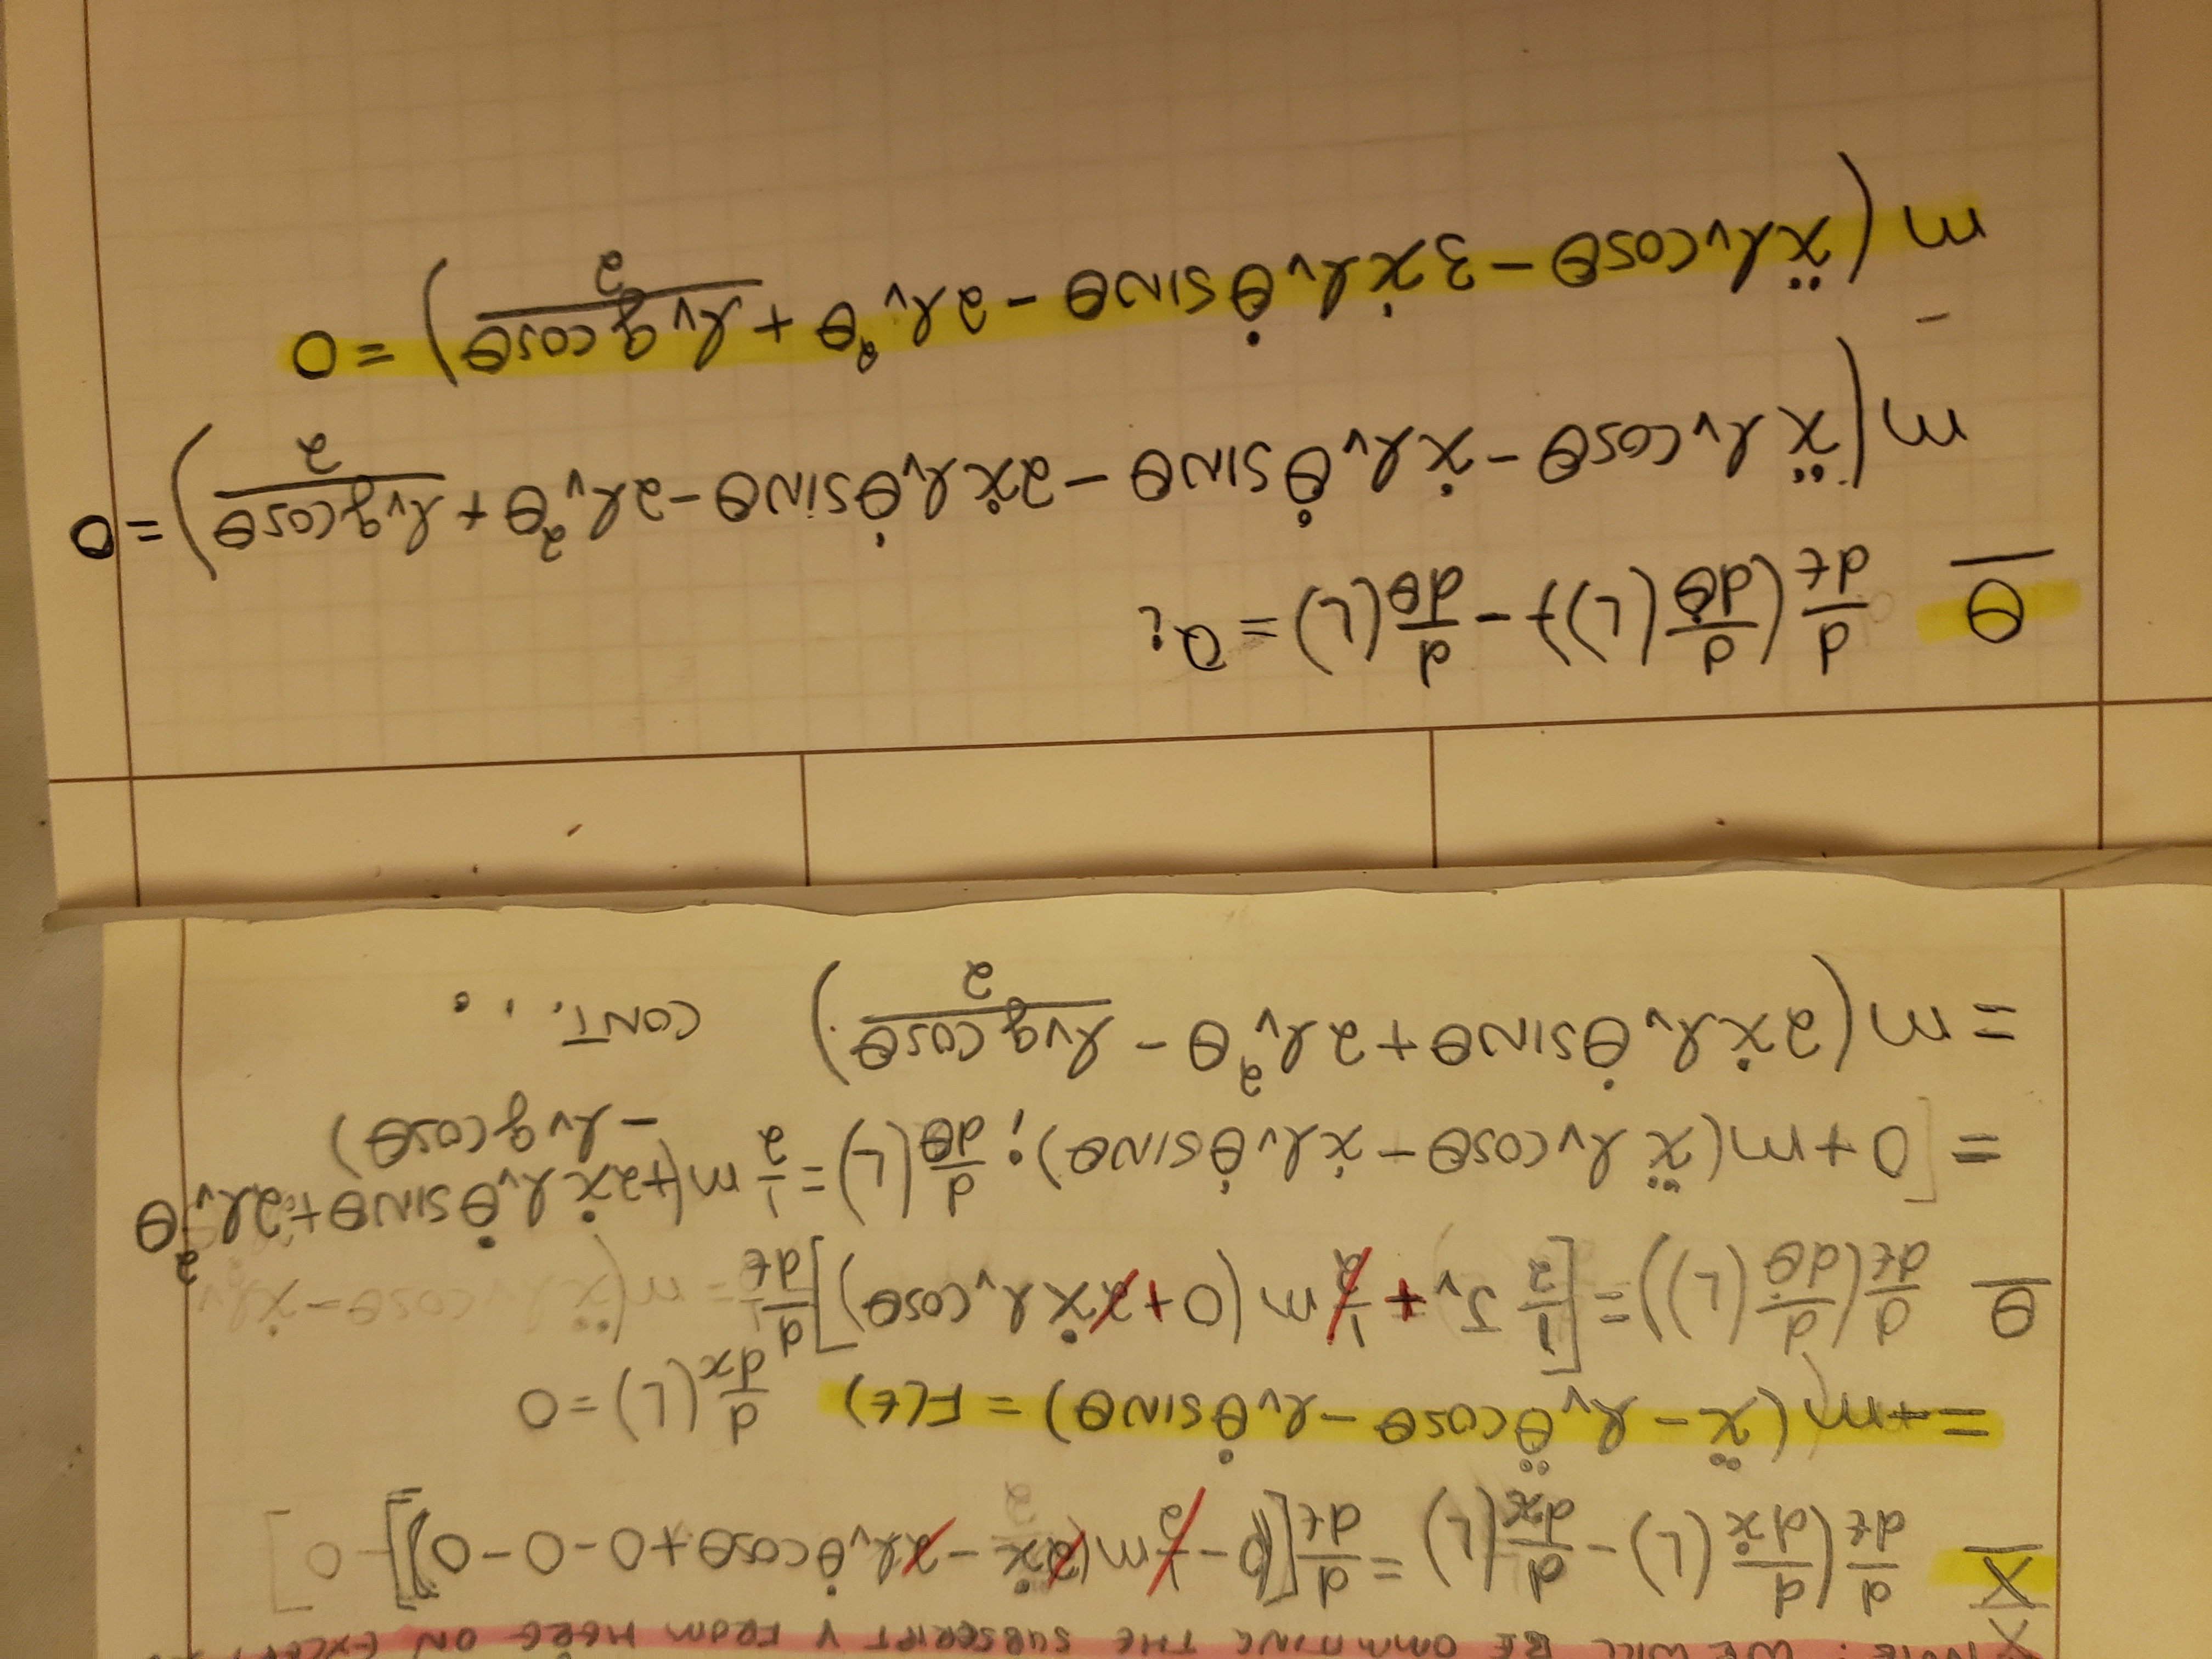 : WE WILL BE OMMITING THE SUBSCRIPT V FROM HERE ON EXCEPT
X d/dt (d/dẋ (L) - d/dx (L) = d/dt [0 - 1/2 m(2ẍ - 2lᵥθ̇cosθ + 0 - 0 - 0)] - 0]
= +m(ẍ - lᵥθ̈cosθ - lᵥθ̇sinθ) = F(t) d/dx (L) = 0
θ d/dt (d/dθ̇ (L)) = [1/2 Jᵥ + 1/2 m (0 + 2ẋ lᵥcosθ)] d/dt
= [0 + m(ẍ lᵥcosθ - ẋ lᵥθ̇sinθ) ; d/dθ (L) = 1/2 m(+2ẋ lᵥθ̇sinθ + 2lᵥ²θ
- lᵥgcosθ)
= m(2ẋlᵥθ̇sinθ + 2lᵥ²θ - lᵥgcosθ/2)
CONT...
θ d/dt (d/dθ̇ (L)) - d/dθ (L) = Qi
m(ẍ lᵥcosθ - ẋ lᵥθ̇sinθ - 2ẋ lᵥθ̇sinθ - 2lᵥ²θ + lᵥgcosθ/2) = 0
m(ẍlᵥcosθ - 3ẋ lᵥθ̇sinθ - 2lᵥ²θ + lᵥgcosθ/2) = 0